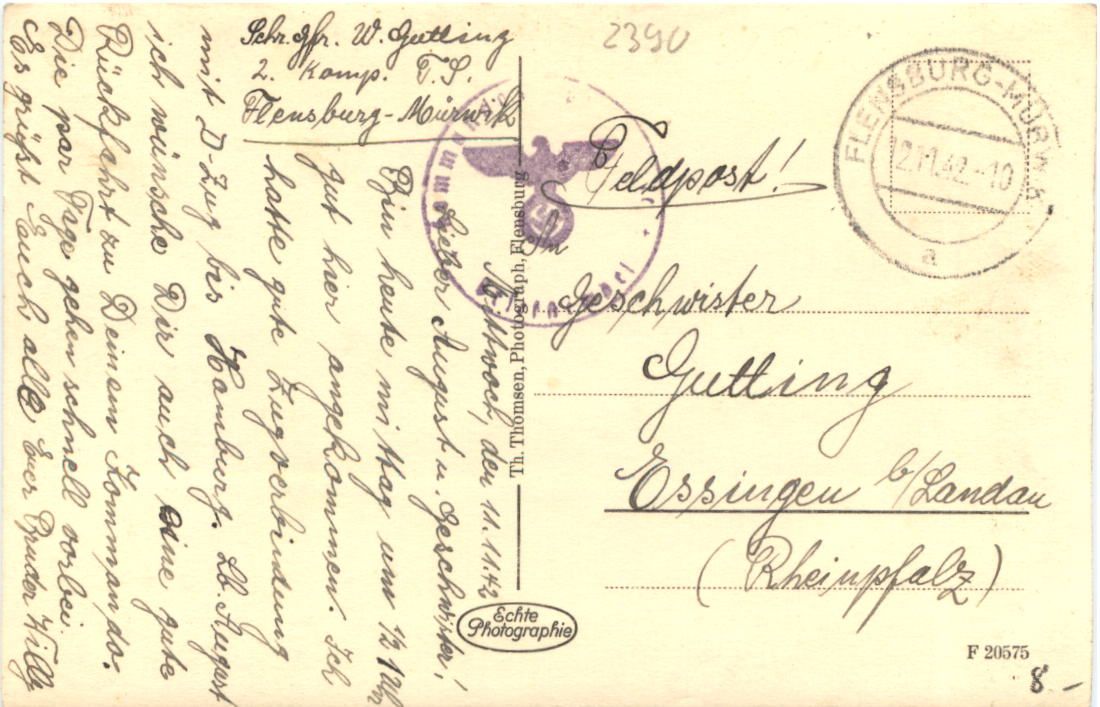 2390
Schr. Gfr. W. Gutting
2. Komp. T.S.
Flensburg-Mürwik
Mittwoch, den 11.11.42
Lieber August u. Geschwister!
Bin heute mittag um 12 Uhr
gut hier angekommen. Ich
hatte gute Zugverbindung
mit D-Zug bis Hamburg. Lb. August
ich wünsche Dir auch eine gute
Rückfahrt zu Deinem Kommando.
Die par Tage gehen schnell vorbei
Es grüßt Euch alle Euer Bruder Willy
Th. Thomsen, Photograph, Flensburg
Echte
Photographie
FLENSBURG-MÜRWIK
12.11.42.-10
a
Feldpost!
An
Geschwister
Gutting
Essingen b/Landau
(Rheinpfalz)
F 20575
8.-